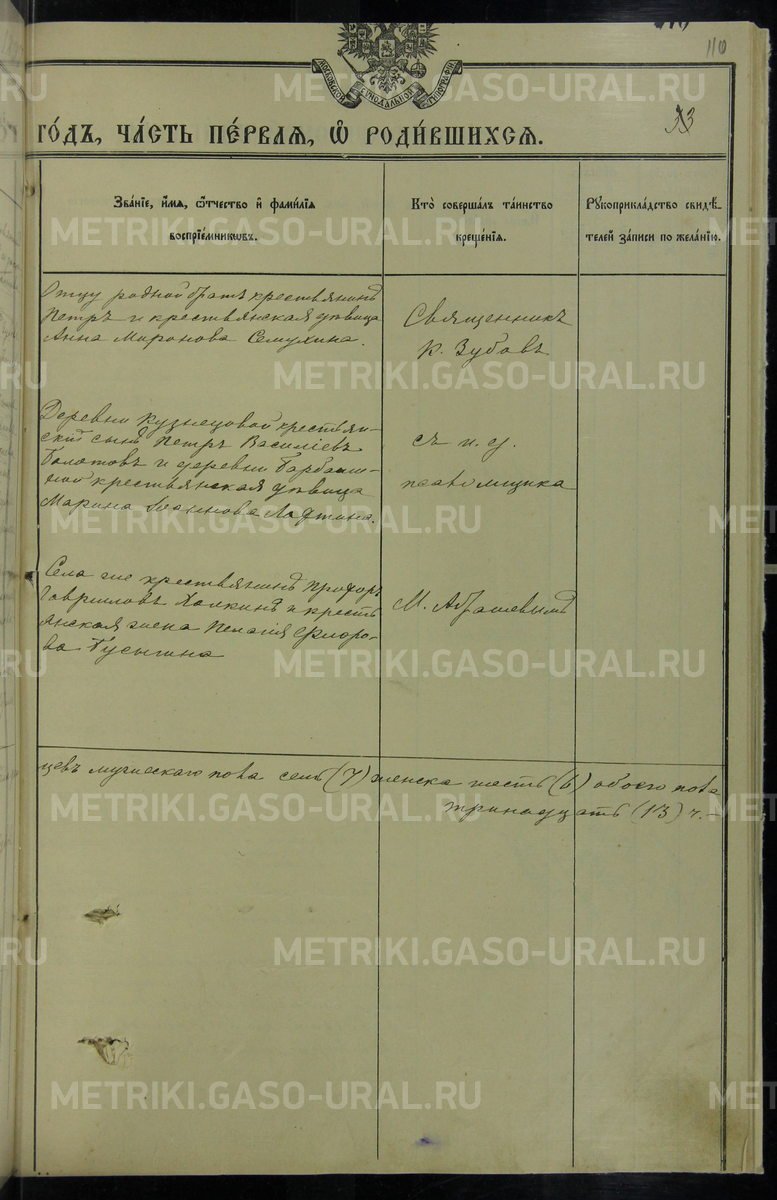 110
МОСКОВСКОЙ СѴНОДАЛЬНОЙ ТИПОГРАФІИ
93
ГО́ДЪ, ЧА́СТЬ ПЕ́РВАЯ, Ѡ҆ РОДИ́ВШИХСЯ.
Зва́нїе, и҆́мя, ѻ҆́тчество и҆ фами́лїя
воспрїе́мникѡвъ.
Кто̀ соверша́лъ та́инство
креще́нїя.
Рꙋкоприкла́дство свидѣ́-
телей за́писи по жела́нїю.
Отцу родной братъ крестьянинъ
Петръ и крестьянская дѣвица
Анна Миронова Семухина.
Священникъ
К. Зубовъ
Деревни Кузнецовой крестьян-
скій сынъ Петръ Василіевъ
Болотовъ и деревни
крестьянская дѣвица
Марина Іоаннова
съ и. д.
псаломщика
Села сего крестьянинъ Прохоръ
Гавриловъ Халкинъ и кресть
янская жена Пелагія Флоро-
ва Бусыгина
М.
цевъ мужескаго пола семь (7) женска шесть (6) обоего пола
тринадцать (13) ч.
METRIKI.GASO-URAL.RU